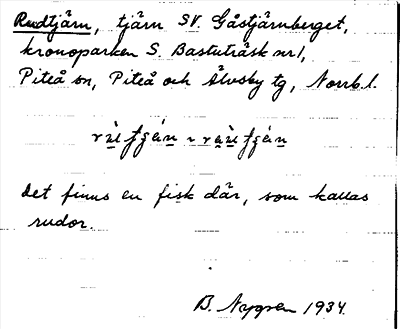 Rudtjärn, tjärn SV. Gåstjärnberget,
kronoparken S. Bastuträsk nr 1,
Piteå sn, Piteå och Älvsby tg, Norrb. l.
det finns en fisk där, som kallas
rudor.
B. Nygren 1934.